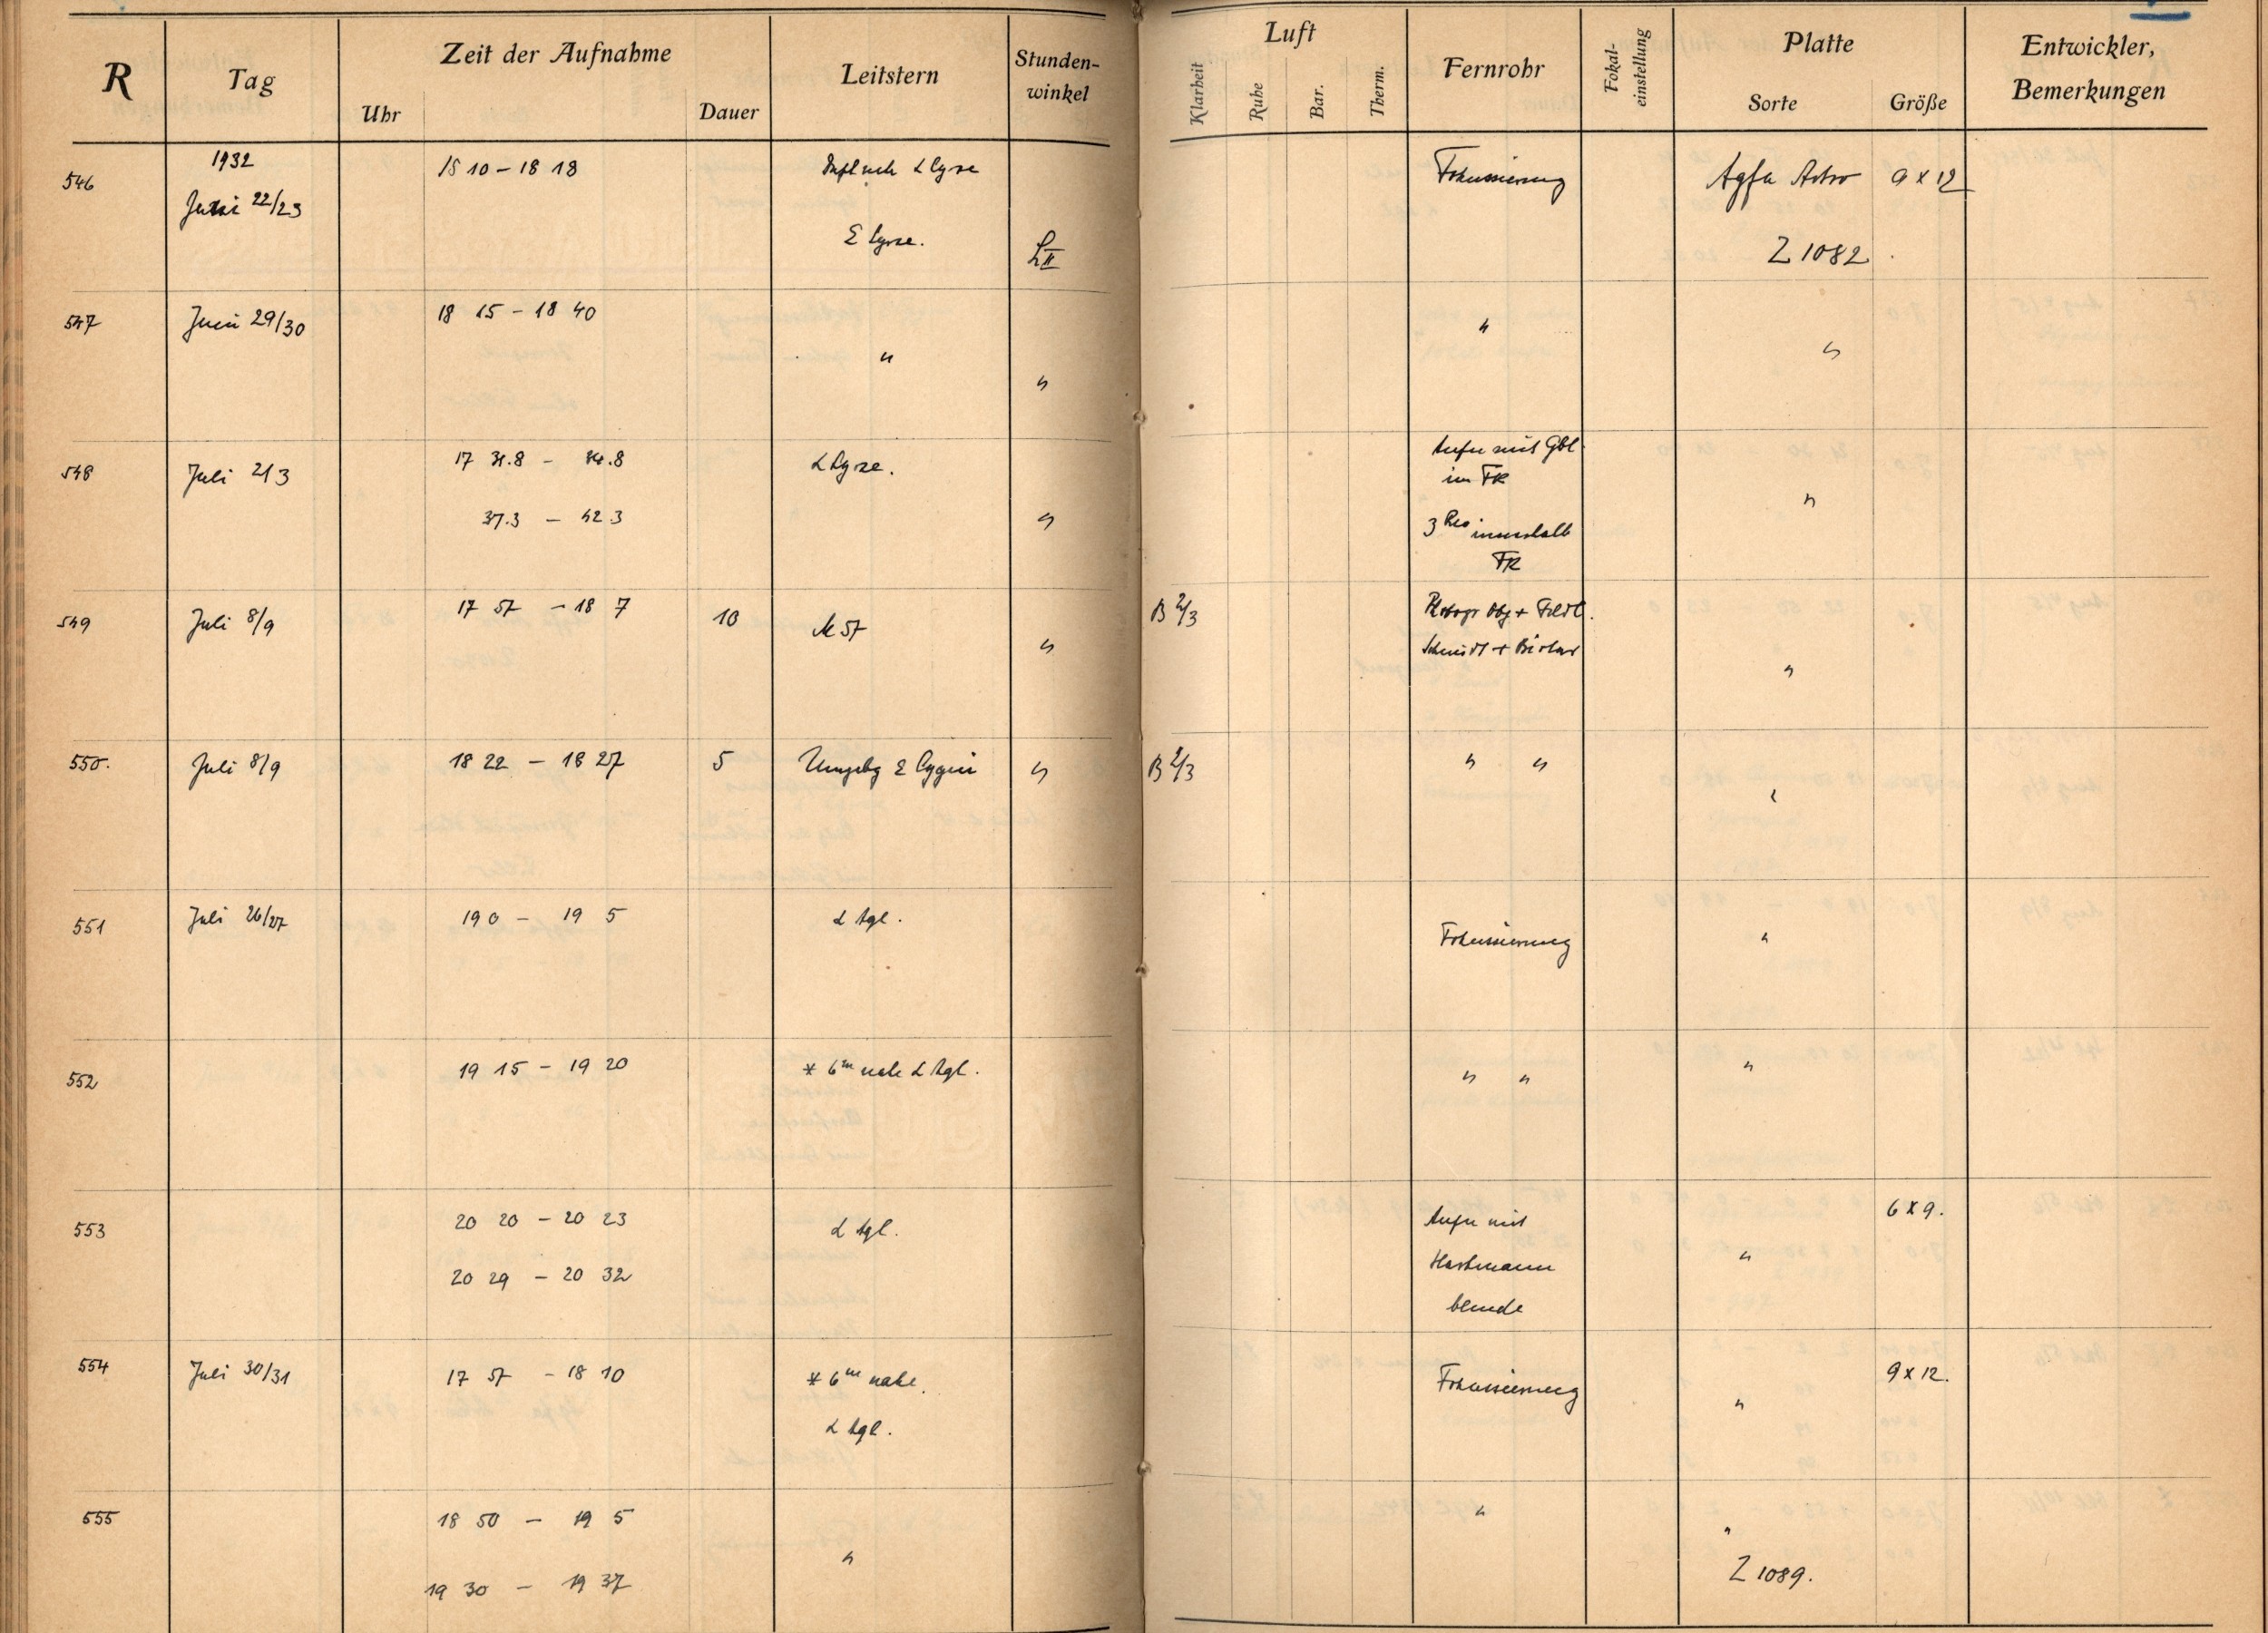 R Tag Zeit der Aufnahme Leitstern Stunden-winkel Luft Fernrohr Fokal-einstellung Platte Entwickler, Bemerkungen
Uhr Dauer Klarheit Ruhe Bar. Therm. Sorte Größe
546 1932 18 10 – 18 18 α Lyrae Fokussierung Agfa Astro 9 x 12
Juni 22/23 ε Lyrae. Z 1082
547 Juni 29/30 18 15 – 18 40 " " " "
548 Juli 2/3 17 31.8 – 34.8 α Lyrae. Aufn mit Gbl.
im FR "
37.3 – 42 3 " 3 innerhalb
FR
549 Juli 8/9 17 57 – 18 7 10 M 57 " B 2/3 Photogr Obj + Feldl.
Schmidt + "
550. Juli 8/9 18 22 – 18 27 5 Umgebg Cygni " B 2/3 " " "
551 Juli 26/27 19 0 – 19 5 α Aql. Fokussierung "
552 19 15 – 19 20 * 6m nahe α Aql. " " "
553 20 20 – 20 23 α Aql. Aufn mit 6 x 9.
20 29 – 20 32 Hartmann "
blende
554 Juli 30/31 17 57 – 18 10 * 6m nahe. Fokussierung " 9 x 12.
α Aql.
555 18 50 – 19 5 " "
19 30 – 19 37 " Z 1089.